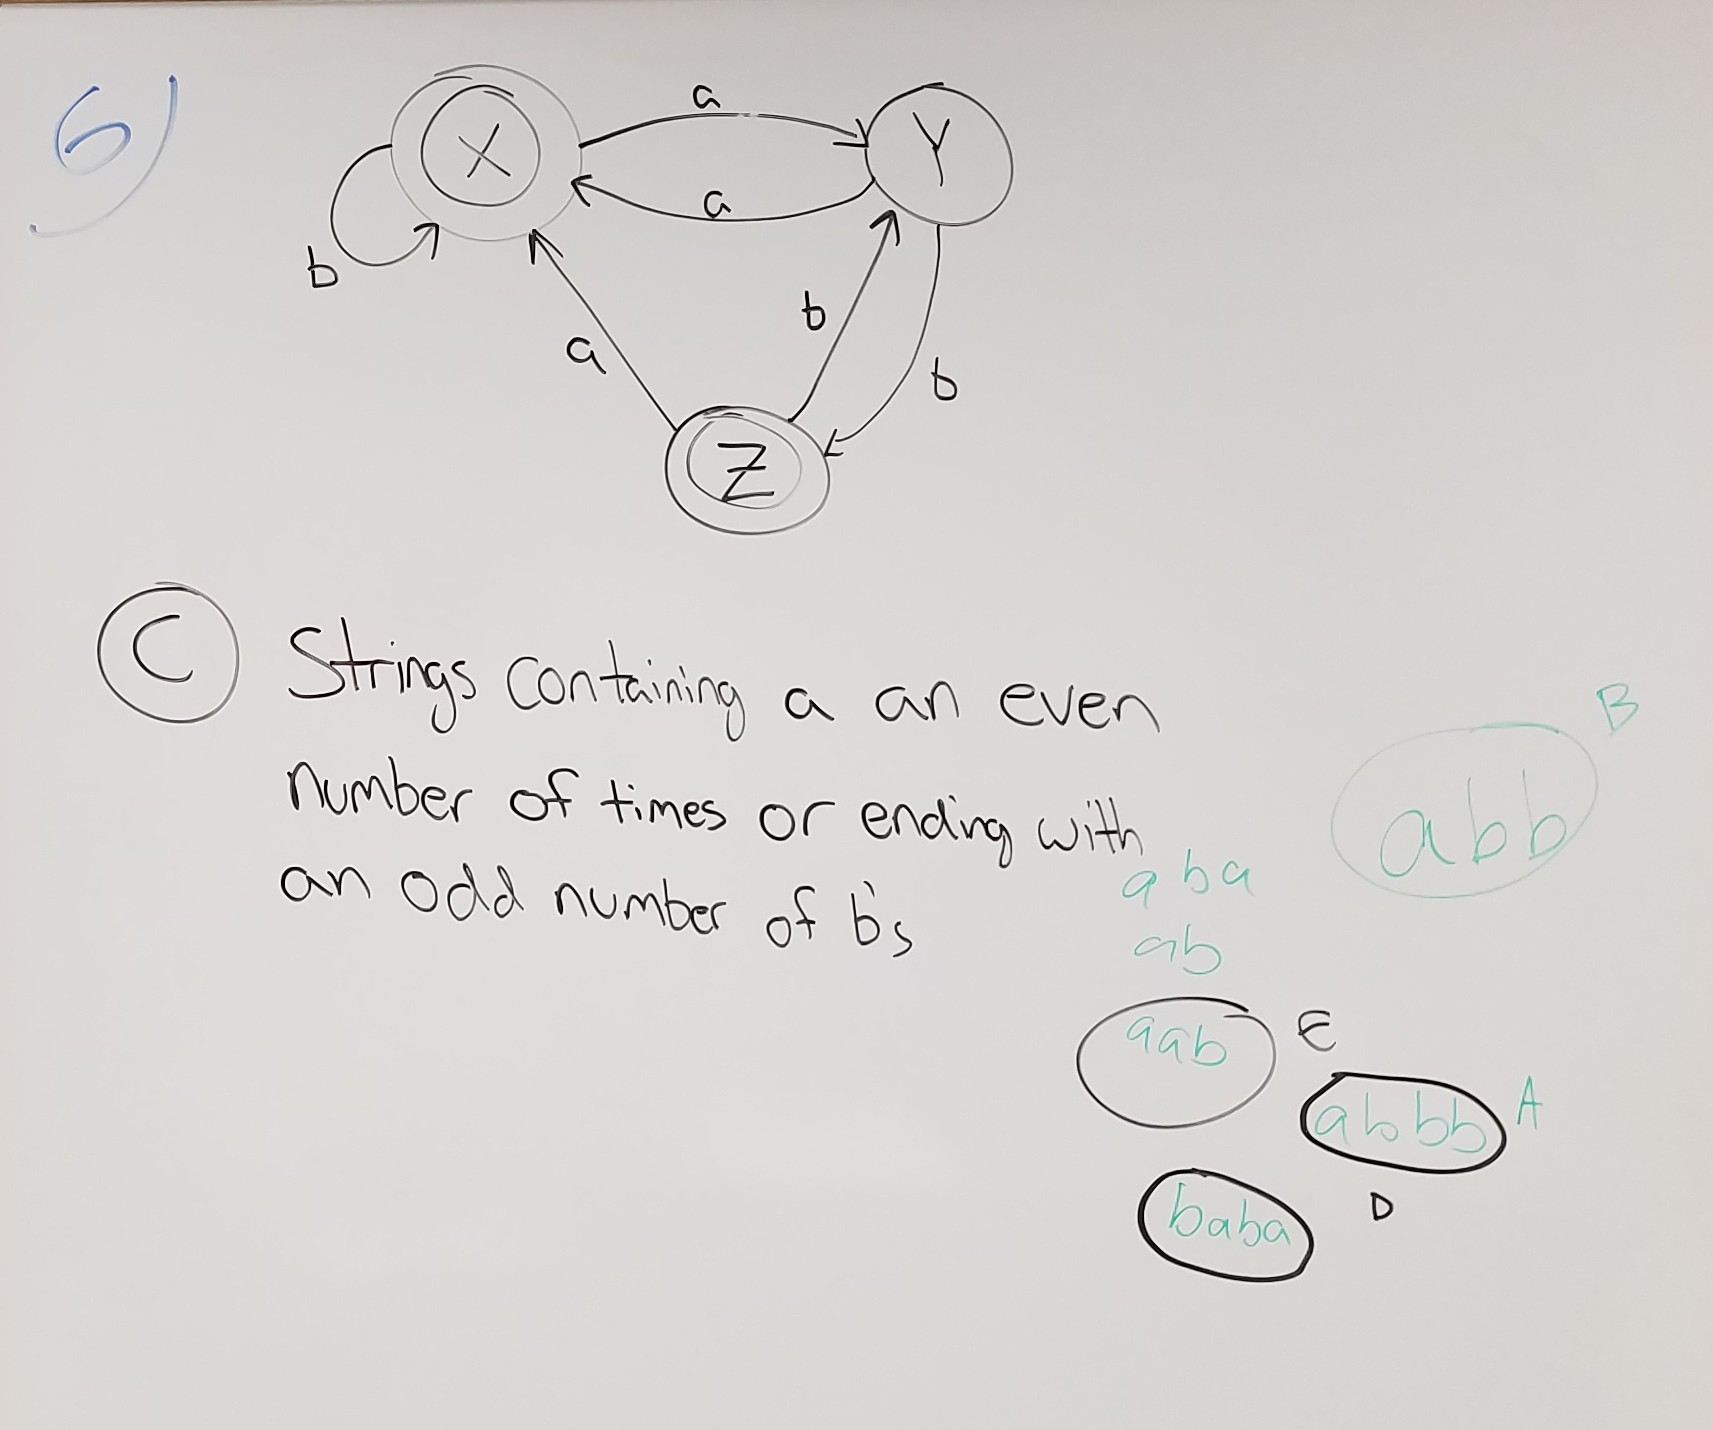 6)
X
a
Y
a
b
a
b
b
Z
C
Strings containing a an even
number of times or ending with
an odd number of b's
B
abb
aba
ab
aab
E
abbb
A
baba
D